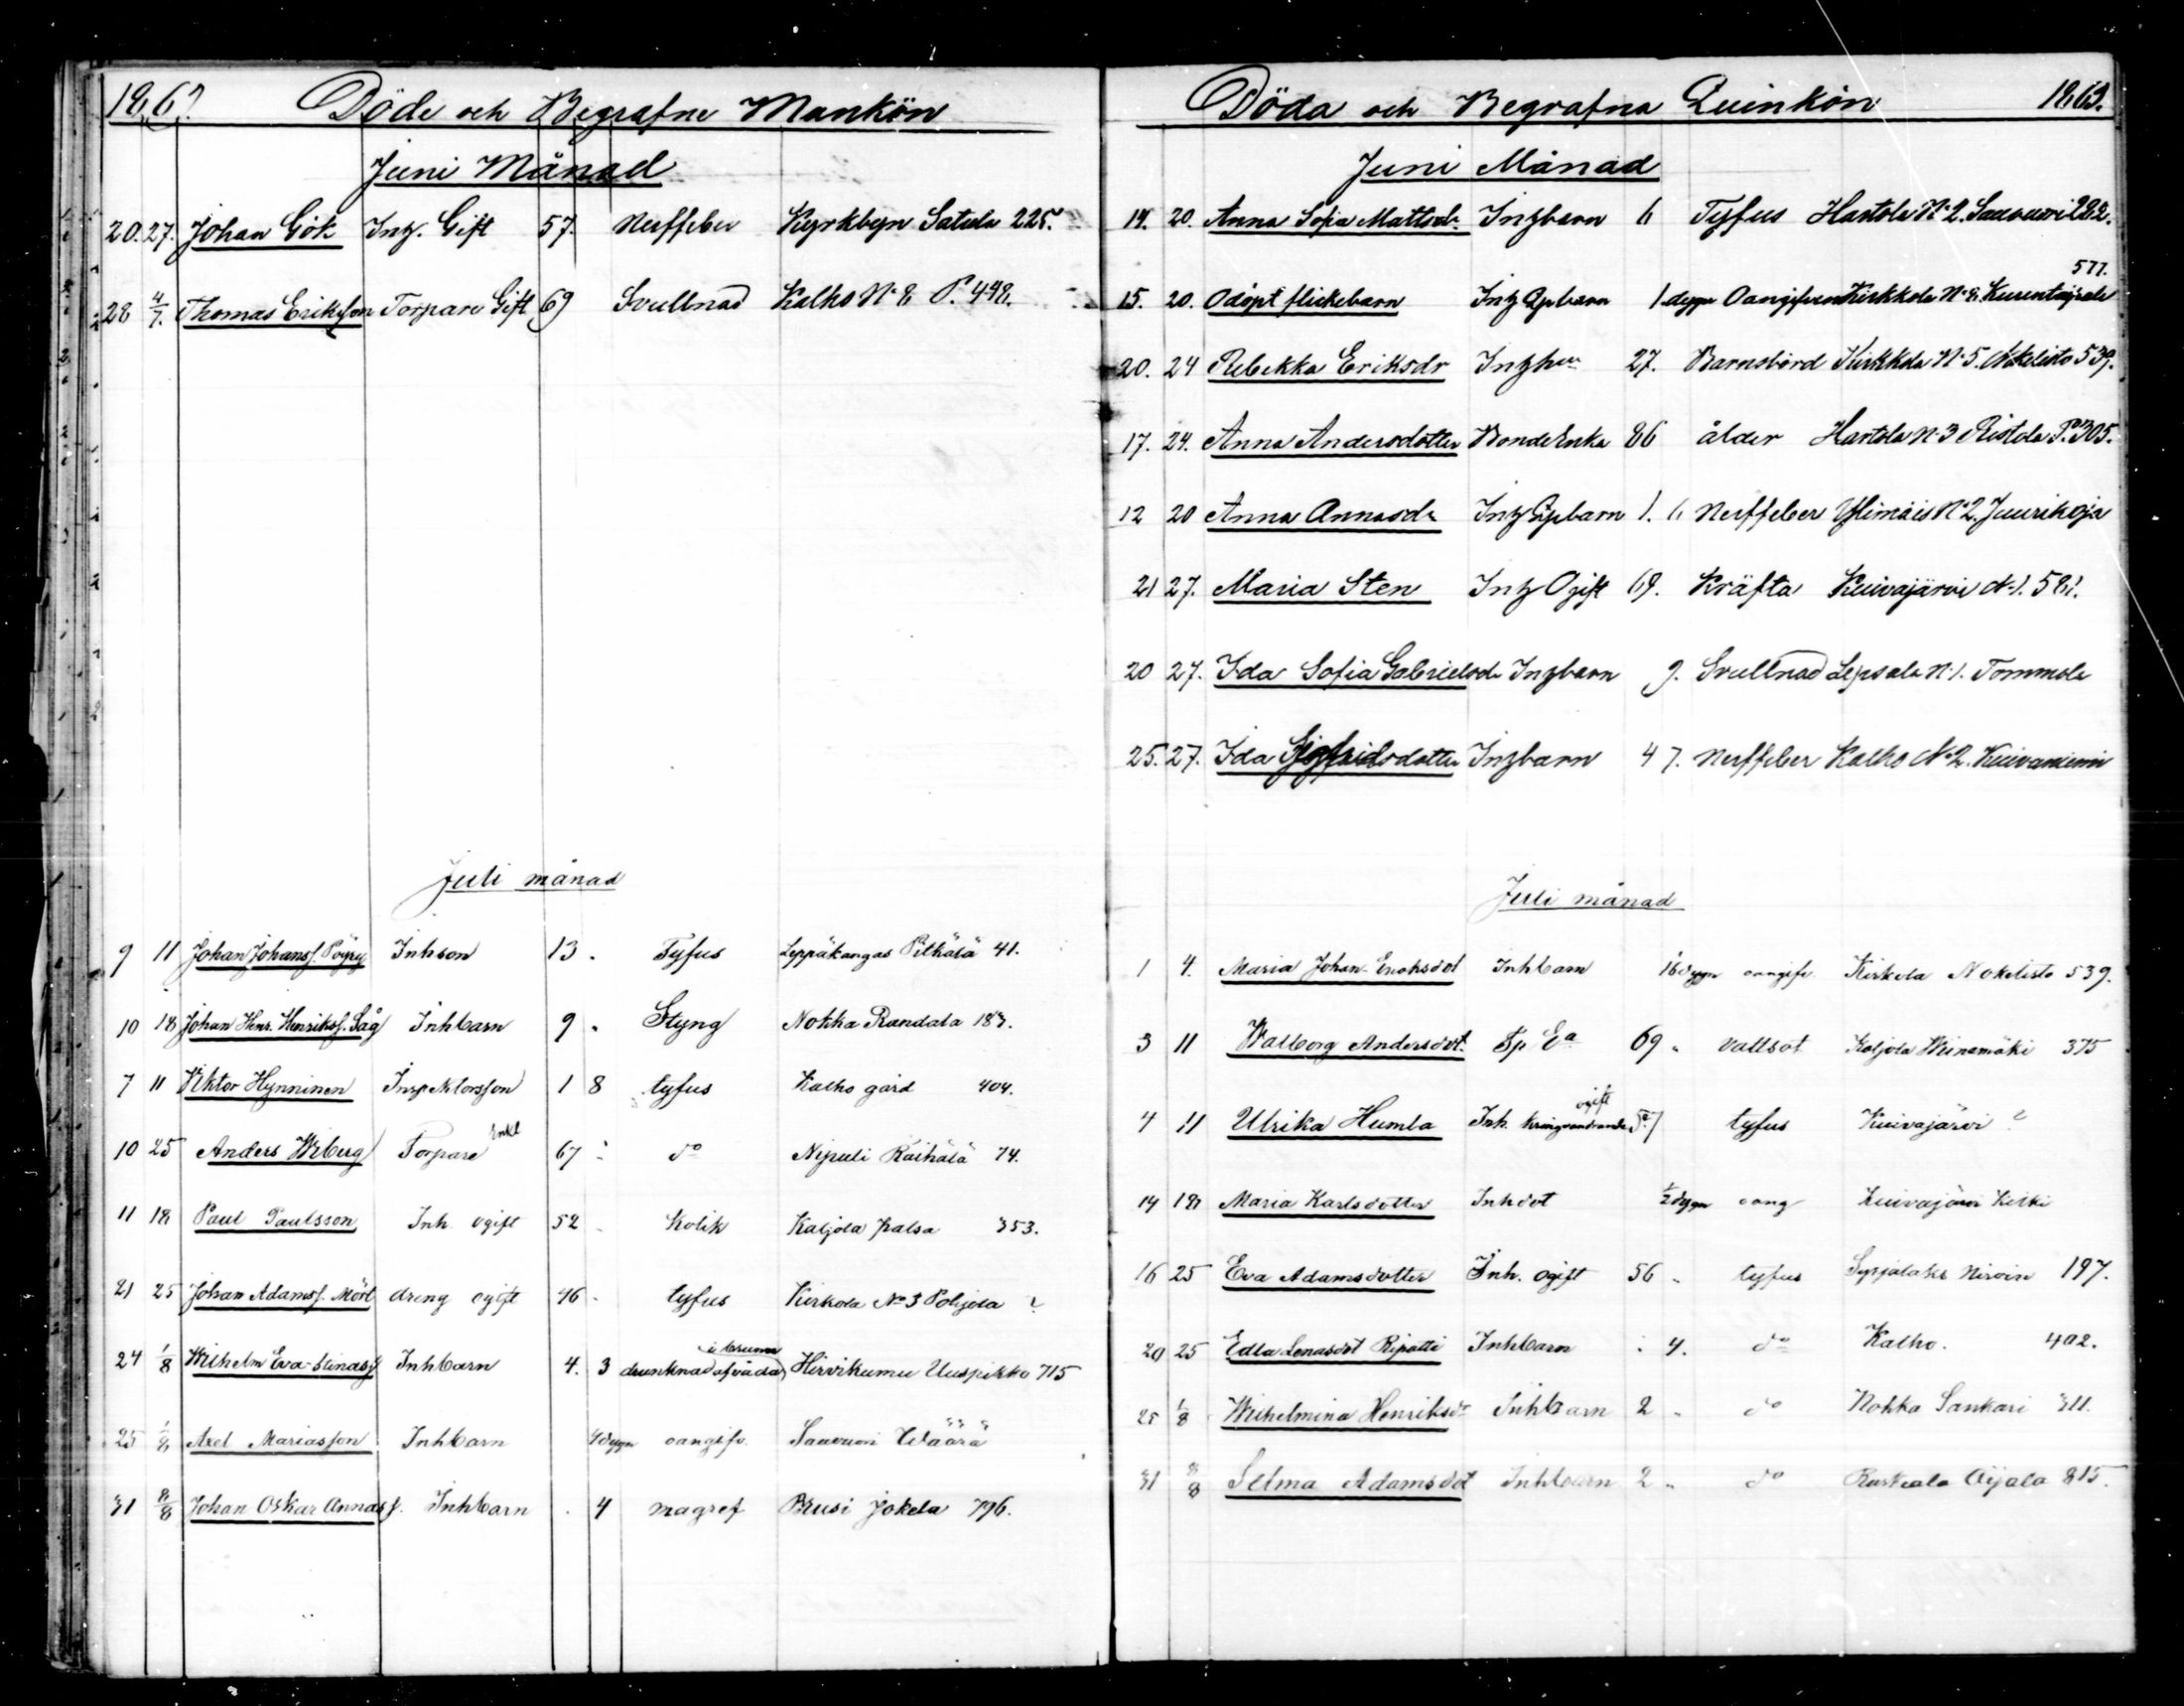 1869. Döde och Begrafne Mankön
Juni Månad
20. 27. Johan Gök Inh. Gift 57 Nerffeber Kyrkbyn Satula 225.
28 4/7. Thomas Eriksson Torpare Gift 69 Svullnad Kalho N:8 P. 448.
Juli månad
9 11 Johan Johanss. Pöyry Inhson 13 . Tyfus Leppäkangas Pilkälä 41.
10 18 Johan Henr. Henrikss. Såg Inhbarn 9 " Styng Nokka Randala 183.
7 11 Viktor Hynninen Inspektorsson 1 8 tyfus Kalho gård 404.
10 25 Anders Wiberg Torpare Enkl 67 do Nipuli Räihälä 74.
11 18 Paul Paulsson Inh ogift 52 Kolik Kaljola palsa 353.
21 25 Johan Adamss. Mört dreng ogift 46 tyfus Kirkola No 3 Pohjola ?
24 1/8 Wilhelm Eva-Stinas. Inhbarn 4. 3 drunknad af våda i brunn Hirvikumu Uuspikko 715
25 1/8 Axel Mariasson Inhbarn 4 dygn oangifv. Sauvuori Wäärä
31 8/8 Johan Oskar Annas s. Inhbarn . 4 magref Brusi Jokela 796.
Döda och Begrafna Quinkön 1869.
Juni Månad
14. 20. Anna Sofia Mattsdr. Inhbarn 6 Tyfus Hartola No 2. Sauvuori 282.
577.
15. 20. Odöpt flickebarn Inh Opbarn 1 dygn Oangifven Kirkkola No 8. Kurentaipale
20. 24 Rebekka Eriksdr Inhhu 27. Barnsbörd Kirkkola No 5. Nokelisto 539.
17. 24. Anna Andersdotter Bonde Enka 86 ålder Hartola No 3 Ristola P. 305.
12 20 Anna Annasdr Inh Opbarn 1. 6 Nerffeber Ylimäis No 2. Juurikoja
21 27. Maria Sten Inh Ogift 69. Kräfta Kuivajärvi No 1. 581.
20 27. Ida Sofia Gabrielsdr Inhbarn 9. Svullnad Lepsala No 1. Tommola
25. 27. Ida Sigfridsdotter Inhbarn 4 7. Nerffeber Kalho No 2. Kuivaniemi
Juli månad
1 4. Maria Johan-Enoksdot Inhbarn 16 dygn oangifv Kirkola Nokelisto 539.
3 11 Walborg Andersdot. Tp Ea 69 " vattsot Kaljola Wiinamäki 375
4 11 Ulrika Humla Inh. kringvandrande ogift 57 tyfus Kuivajärvi ?
14 18 Maria Karlsdotter Inhdot 1/2 dygn oang Kuivajärvi Kilki
16 25 Eva Adamsdotter Inh. ogift 56 " tyfus Syrjälaks Nirvin 197.
20 25 Edla Lenasdot Ripatti Inhbarn . 4. do Kalho. 402.
25 1/8 Wilhelmina Henriksdr Inhbarn 2 " do Nokka Sankari 311.
31 8/8 Selma Adamsdot Inhbarn 2 " do Ruskeala Äijälä 815.